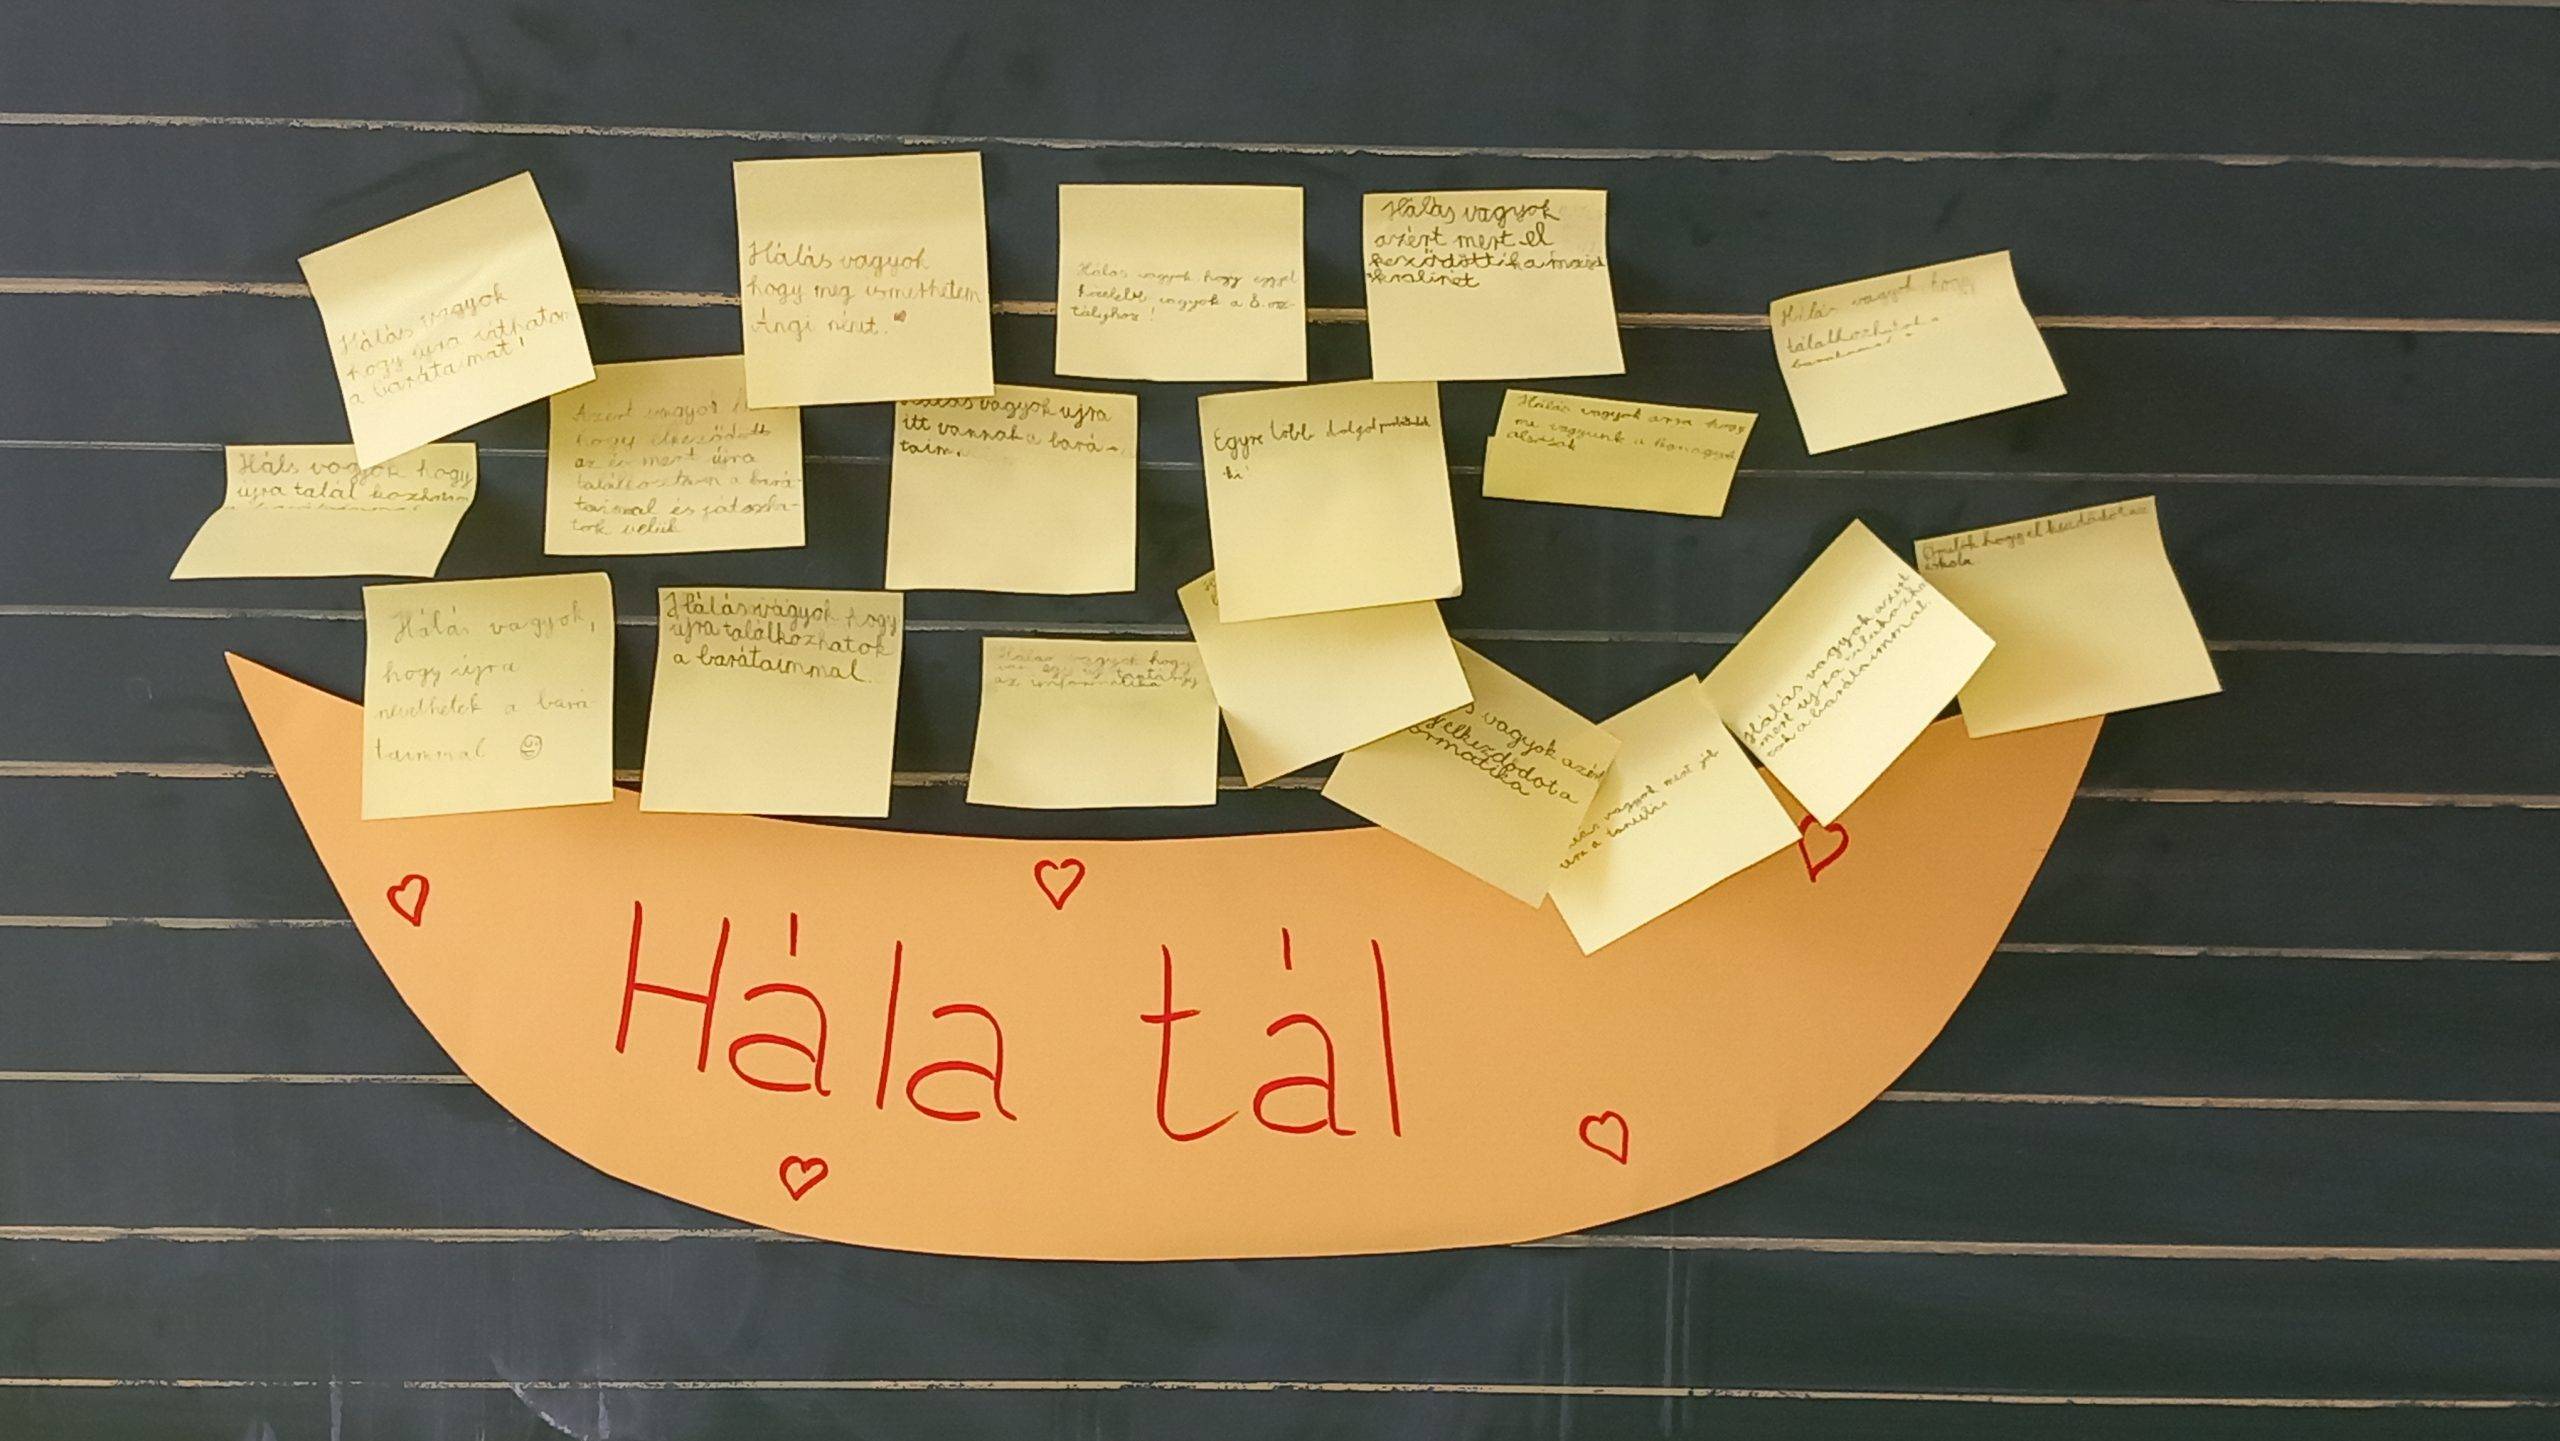 Hálás vagyok
hogy újra láthatom
a barátaimat!
Hálás vagyok
hogy meg ismerhetem
Ángi nénit.
Hálás vagyok, hogy eggyel
közelebb vagyok a 8. osz-
tályhoz!
Hálás vagyok
azért mert el
Hálás vagyok, hogy
találkozhatok a
Háls vagyok hogy
újra talál kozhatom
Azért vagyok
hogy elkezdődött
az év mert újra
a bará-
taimmal és játszha-
tok velük
vagyok ujra
itt vannak a bará-
taim.
Egyre több dolgot
ki
Hálás vagyok arra hogy
mi vagyunk a
alsósok
Örülök hogy el kezdődöt az
iskola
Hálás vagyok,
hogy újra
nevethetek a bará-
taimmal
Hálás vagyok hogy
újra találkozhatok
a barátaimmal.
Hálás vagyok hogy
van egy új tantárgy
az informatika
vagyok azért
elkezdődöt a
ormatika
vagyok mert jók
a
Hálás vagyok azért
mert új ra találkozha
tok a barátaimmal.
Hála tál